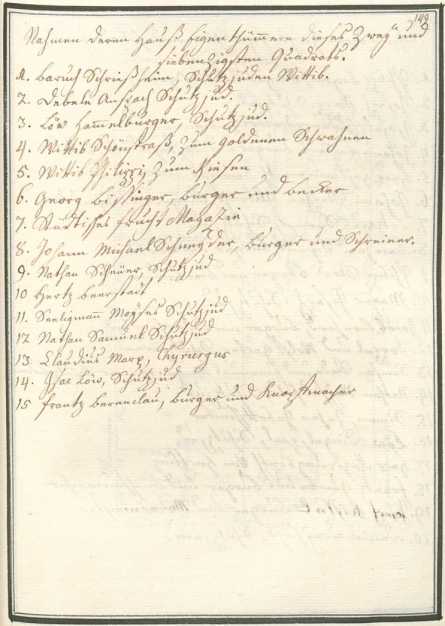 149
Nahmen deren Hauß Eigenthümmere dieses Zwey und
siebenzigsten Quadrats.
1. Baruch Schrießheim, Schutzjuden Wittib.
2. Anspach Schutzjud.
3. Löw Hammelburger, Schutzjud.
4. Wittib Schönstraß, zum goldenen Schwahnen
5. Wittib Philippj zum Riesen
6. Georg Bissinger, burger und becker
7. Stadtisches frucht Magazin
8. Johann Michael Schneyder, burger und Schreiner.
9. Nathan Scheüer, Schutzjud
10 Hertz beerstadt
11. Seeligmann Moyses Schutzjud
12 Nathan Samuel Schutzjud
13. Claudius Marx, Chyrurgus
14. Isac Löw, Schutzjud
15 frantz berenclau, burger und Knopfmacher